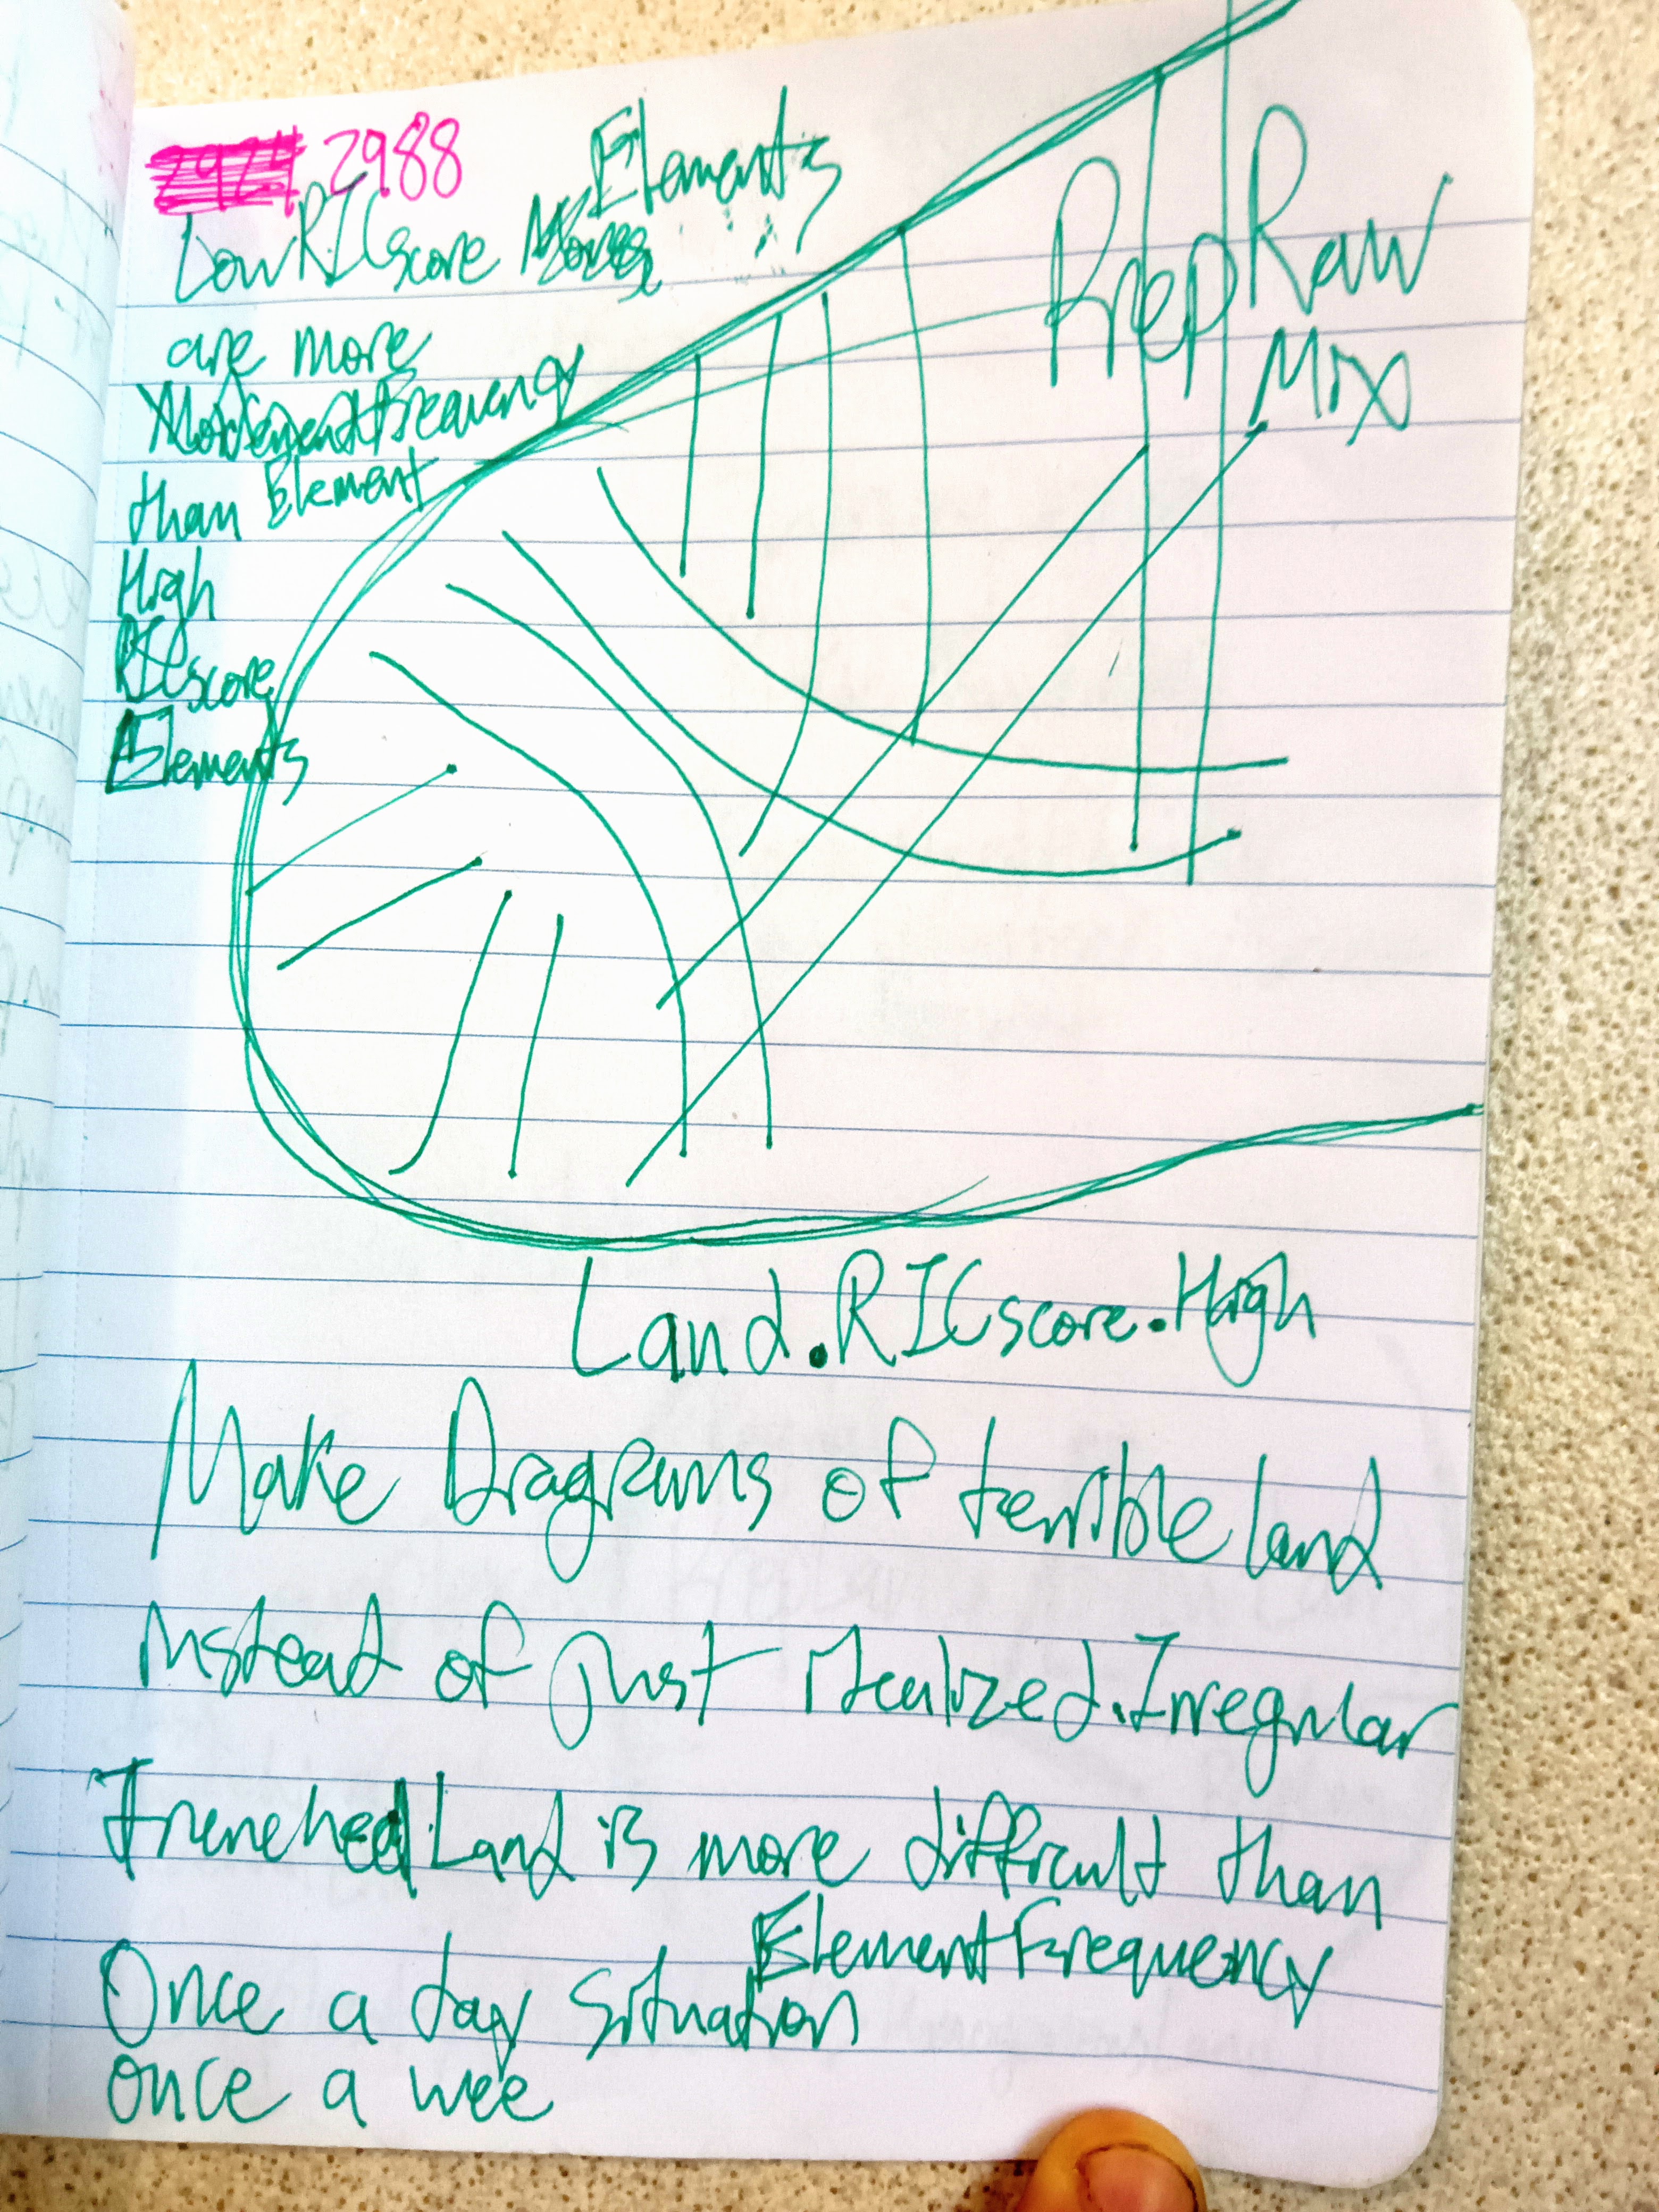 2988
Elements
Low RICscore
are more
than Element
High
RICscore
Elements
Prep Raw
Mix
Land.RICscore.High
Make Diagrams of terrible land
instead of just idealized.Irregular
Trenched Land is more difficult than
ElementFrequency
Once a day situation
once a wee